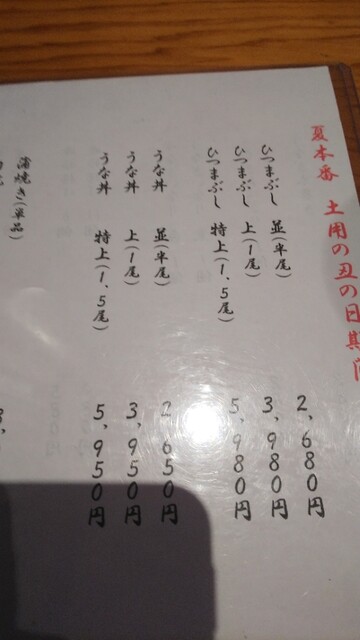 夏本番 土用の丑の日期間
ひつまぶし 並(半尾) 2,680円
ひつまぶし 上(1尾) 3,980円
ひつまぶし 特上(1、5尾) 5,980円
うな丼 並(半尾) 2,650円
うな丼 上(1尾) 3,950円
うな丼 特上(1、5尾) 5,950円
蒲焼き(単品) 3,